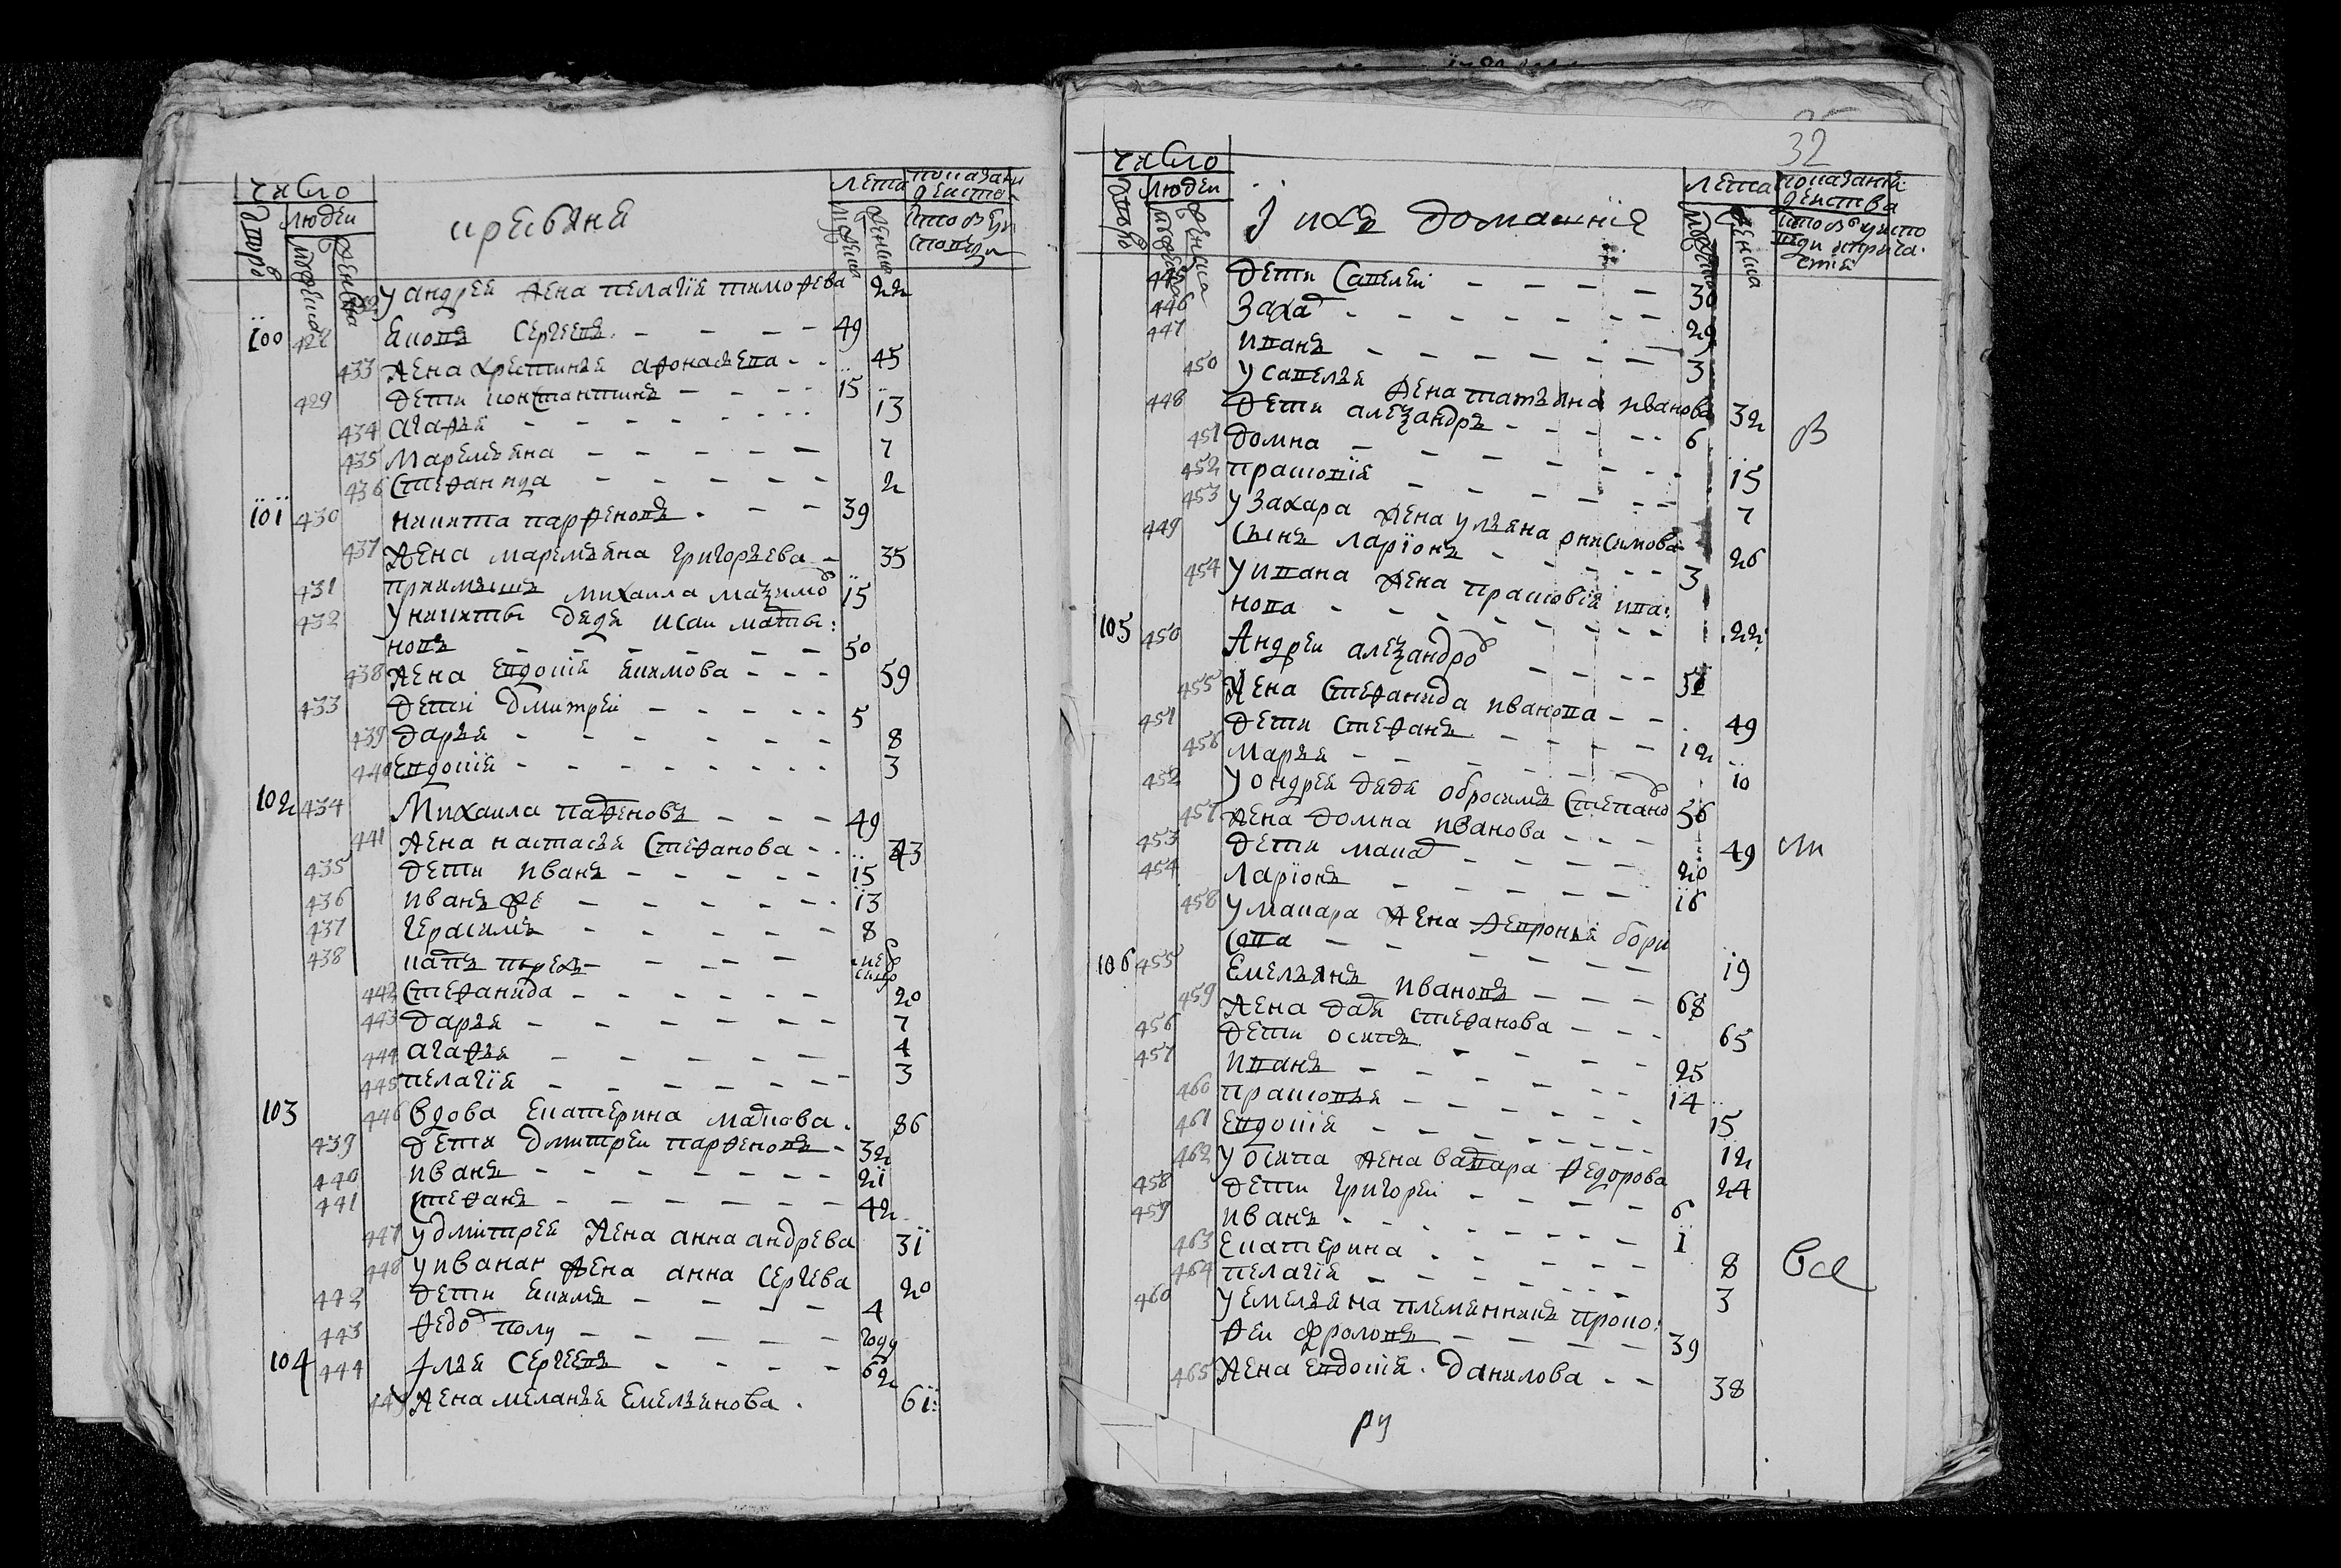 число
дворовъ
людеи
мужеска
женска
крестьяня
лета
мужеска
женска
показани
действо
432 у андрея жена пелагiя тимофева 22
100 428 екопъ сергеевъ 49
433 жена христинья афонасьева 45
429 дети констаньтинъ 15
434 агафья 13
435 маремьяна 7
436 стефанида 2
101 430 никита парфеновъ 39
437 жена маремьяна григорьева 35
431 приимышъ михаила маѯимо 15
432 у никиты дядя исаи марты:
новъ 50
438 жена евдокия екимова 59
433 дети дмитреи 5
439 дарья 8
440 евдокия 3
102 434 михаила парфеновъ 49
441 жена настасья стефанова 43
435 дети иванъ 15
436 иванъ же 13
437 герасимъ 8
438
442 стефанида 20
443 дарья 7
444 агафья 4
445 пелагiя 3
103 446 вдова екатерина маркова 86
439 дети дмитреи парфеновъ 32
440 иванъ 21
441 стефанъ 42
447 у дмитрея жена анна андрева 31
448 у ивана жена анна сергева 20
442 дети екимъ 4
443 федор полу году
104 444 илья сергеевъ 62
449 жена меланья емельянова 61
32
число
дворовъ
людеи
мужеска
женска
i ихъ домашнiя
лета
мужеска
женска
показания
действа
445 дети савелеи 30
446 захар 29
447 иванъ 3
450 у савелья жена татьяна иванова 32
448 дети алеѯандръ 6
451 домна 15
452 прасковiя 7
453 у захара жена ульяна онисимова 26
449 сынъ ларiонъ 3
454 у ивана жена прасковiя ива:
нова 22
105 450 андреи алеѯандров 51
455 жена стефанида иванова 49
451 дети стефанъ 12
456 марья 10
452 у ондрея дядя обросимъ степано 56
457 жена домна иванова 49
453 дети макар 20
454 ларiонъ 16
458 у макара жена февронья бори
сова 19
106 455 емельянъ ивановъ 68
459 жена дарья стефанова 65
456 дети осипъ 25
457 иванъ 14
460 прасковья 15
461 евдокия 12
462 у осипа жена варвара федорова 24
458 дети григореи 6
459 иванъ 1
463 екатерина 8
464 пелагiя 3
460 у емельяна племянникъ проко:
феи фроловъ 39
465 жена евдокия данилова 38
ру